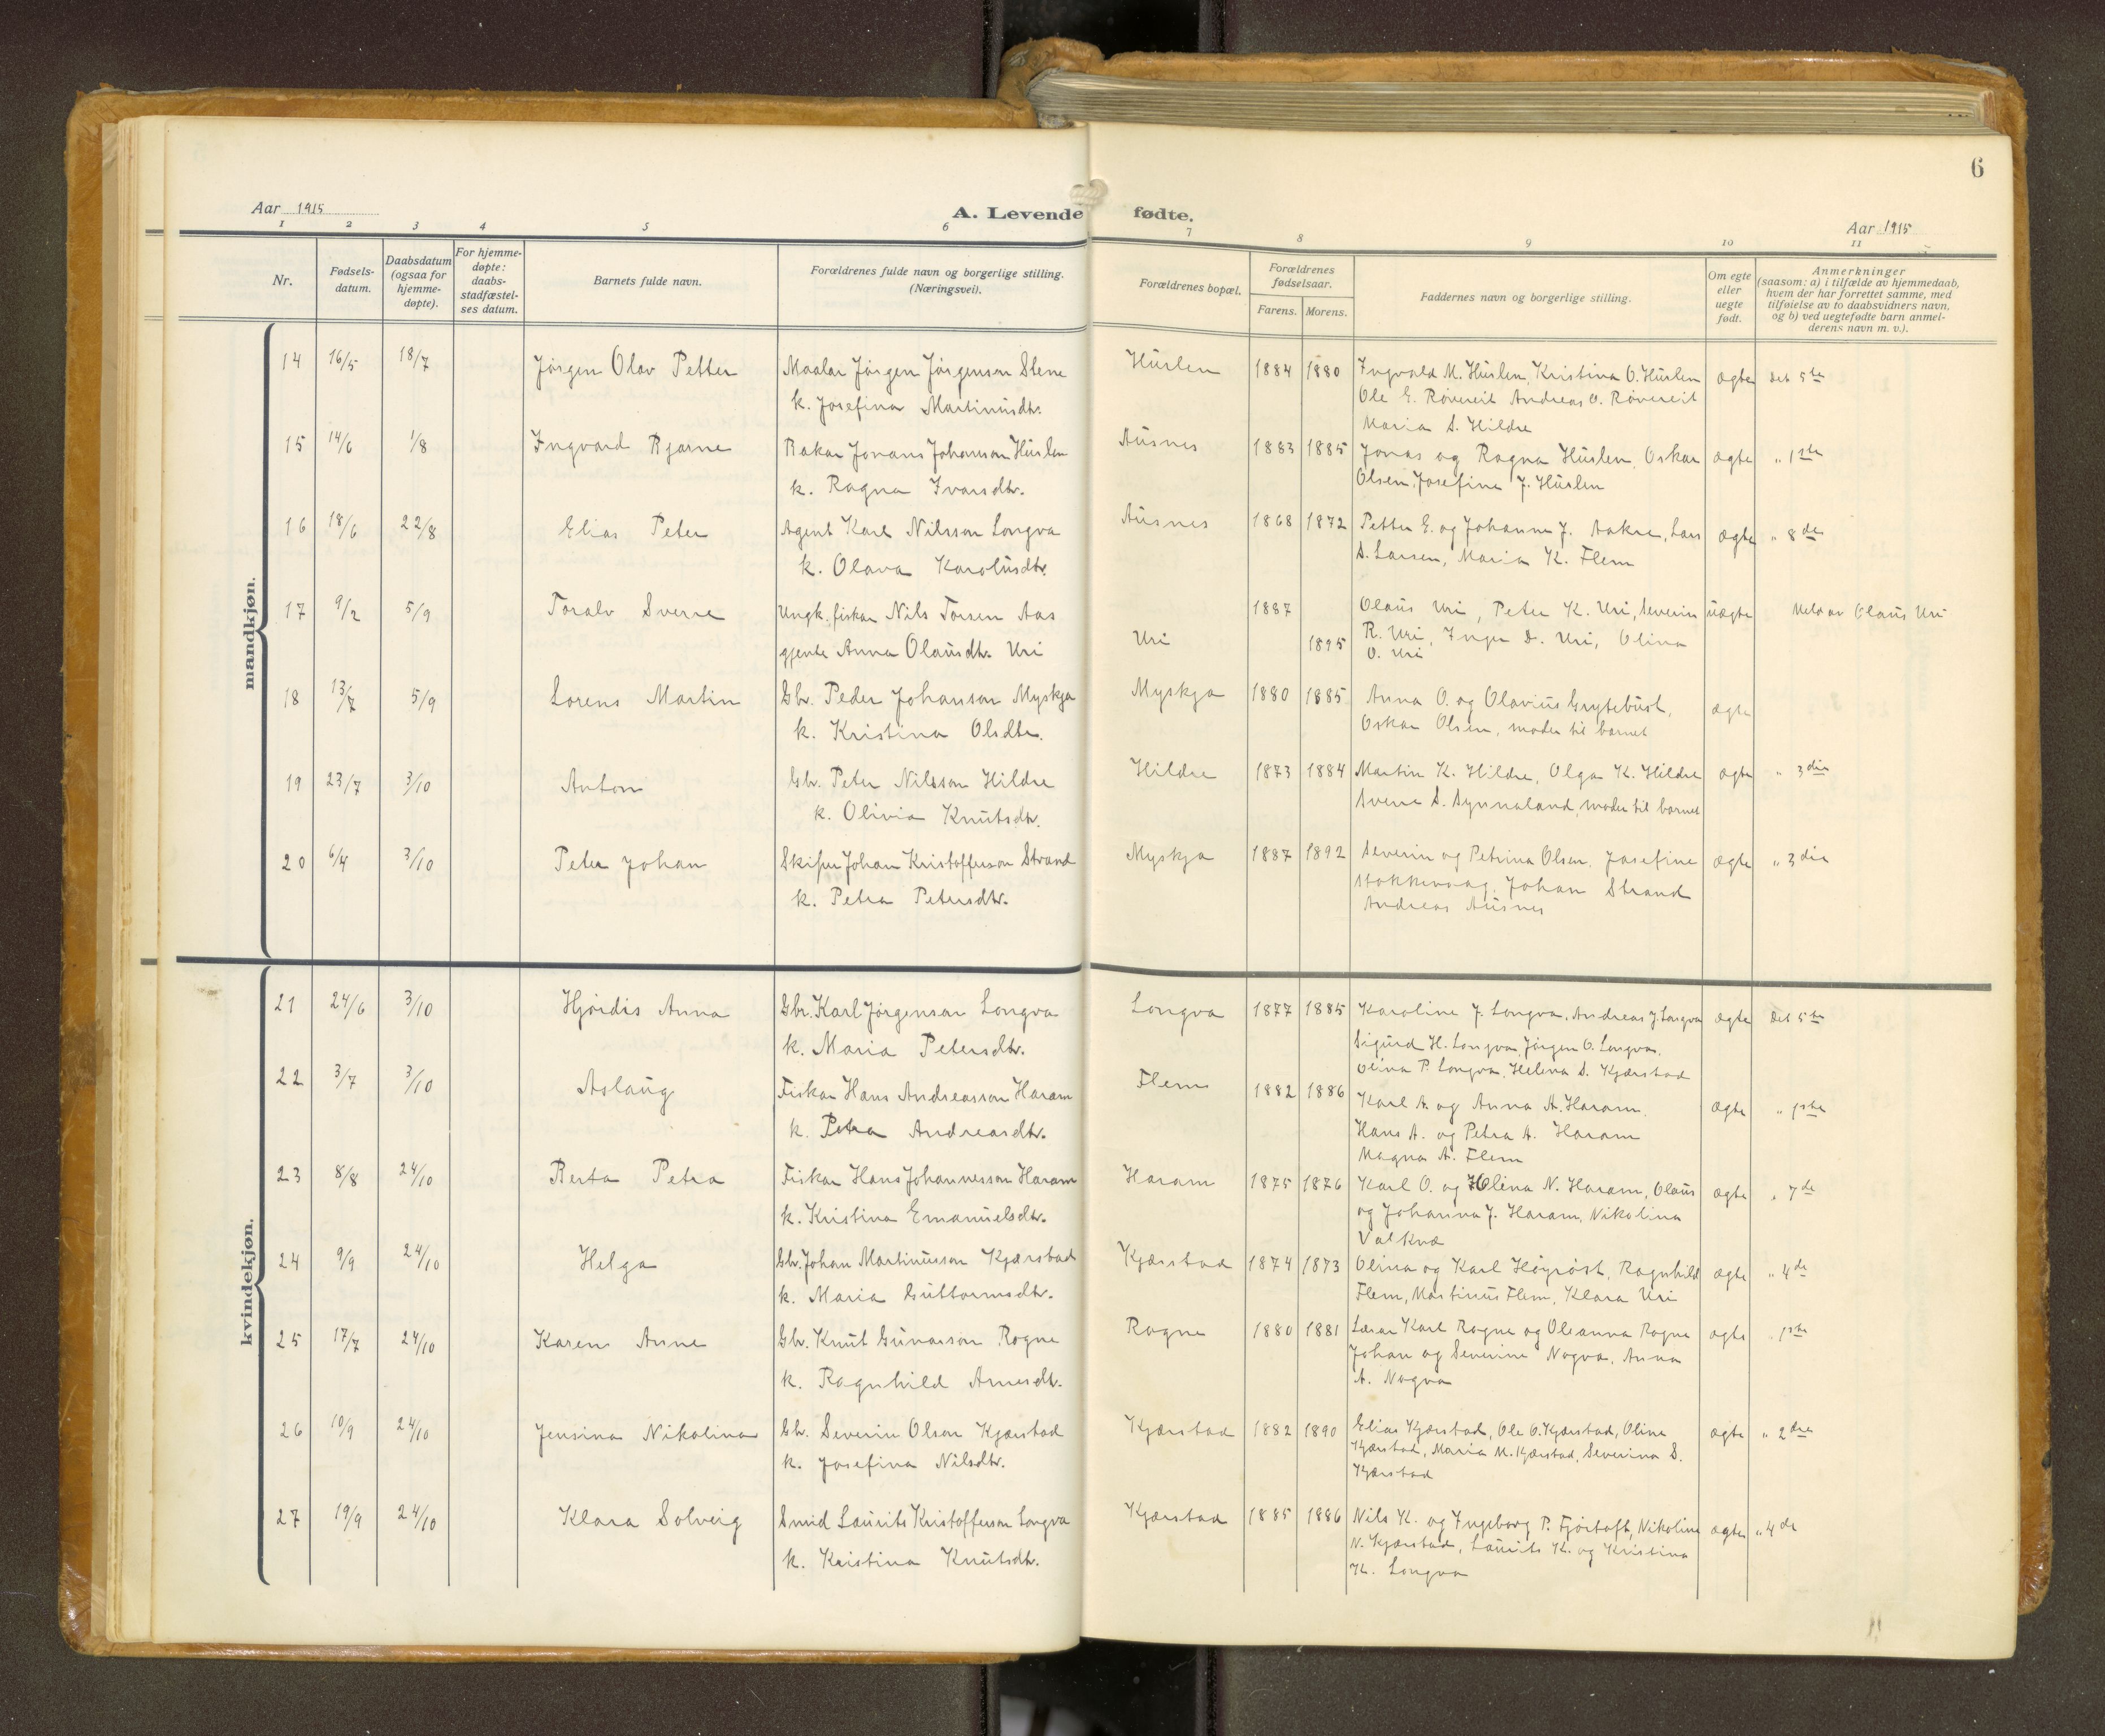 6
Aar 1915
A. Levende fødte.
Aar 1915
1 2 3 4 5 6 7 8 9 10 11
Nr.
Fødsels-
datum.
Daabsdatum
(ogsaa for
hjemme-
døpte).
For hjemme-
døpte:
daabs-
stadfæstel-
ses datum.
Barnets fulde navn.
Forældrenes fulde navn og borgerlige stilling.
(Næringsvei).
Forældrenes bopæl.
Forældrenes
fødselsaar.
Farens. Morens.
Faddernes navn og borgerlige stilling.
Om egte
eller
uegte
født.
Anmerkninger
(saasom: a) i tilfælde av hjemmedaab,
hvem der har forrettet samme, med
tilføielse av to daabsvidners navn,
og b) ved uegtefødte barn anmel-
derens navn m. v.).
mandkjøn.
14 16/5 18/7 Jørgen Olav Petter Maalar Jørgen Jørgenson Slene Huslen 1884 1880 Ingvald M. Huslen, Kristina O. Huslen ægte Det 5te
k. Josefina Martinusdtr. Ole E. Røvereit Andreas O. Røvereit
Maria S. Hildre
15 14/6 1/8 Ingvard Bjarne Bakar Jonas Johanson Huslen Ausnes 1883 1885 Jonas og Ragna Huslen, Oskar ægte " 1ste
k. Ragna Ivarsdtr. Olsen, Josefine J. Huslen
16 18/6 22/8 Elias Peter Agent Karl Nilsson Longva Ausnes 1868 1872 Petter E. og Johanne J. Aakre, Lars ægte " 8de
k. Olava Karolusdtr. S. Larsen, Maria K. Flem
17 9/2 5/9 Toralv Sverre Ungk. fiskar Nils Torsen Aas 1887 Olaus Uri, Peter K. Uri, Severin uægte Meld av Olaus Uri
gjente Anna Olausdtr. Uri Uri 1895 R. Uri, Inga D. Uri, Olina
O. Uri
18 13/7 5/9 Lorens Martin Gbr. Peder Johanson Myskja Myskja 1880 1885 Anna O. og Olavius Grytebust, ægte
k. Kristina Olsdtr. Oskar Olsen, moder til barnet
19 23/7 3/10 Anton Gbr. Peter Nilsson Hildre Hildre 1873 1884 Martin K. Hildre, Olga K. Hildre ægte " 3die
k. Olivia Knutsdtr. Sverre S. Synnaland, moder til barnet
20 6/4 3/10 Peter Johan Skiper Johan Kristofferson Strand Myskja 1887 1892 Severin og Petrina Olsen, Josefine ægte " 3die
k. Petra Petersdtr. Stokkevaag, Johan Strand
Andreas Ausnes
kvindekjøn.
21 24/6 3/10 Hjørdis Anna Gbr. Karl Jørgenson Longva Longva 1877 1885 Karoline J. Longva, Andreas J. Longva ægte Det 5te
k. Maria Petersdtr. Sigurd H. Longva, Jørgen O. Longva,
Olina P. Longva, Helena S. Kjærstad
22 3/7 3/10 Aslaug Fiskar Hans Andreasson Haram Flem 1882 1886 Karl A. og Anna A. Haram, ægte " 1ste
k. Petra Andreasdtr. Hans A. og Petra A. Haram
Magna A. Flem
23 8/8 24/10 Berta Petra Fiskar Hans Johannesson Haram Haram 1875 1876 Karl O. og Olina N. Haram, Olaus ægte " 7de
k. Kristina Emanuelsdtr. og Johanna J. Haram, Nikolina
Valkvæ
24 9/9 24/10 Helga Gbr. Johan Martinusson Kjærstad Kjærstad 1874 1873 Olina og Karl Høgrøst, Ragnhild ægte " 4de
k. Maria Guttormsdtr. Flem, Martinus Flem, Klara Uri
25 17/7 24/10 Karen Anne Gbr. Knut Gunarson Rogne Rogne 1880 1881 Lærar Karl Rogne og Oleanna Rogne ægte " 1ste
k. Ragnhild Arnesdtr. Johan og Severine Nogva, Anna
A. Nogva
26 10/9 24/10 Jensina Nikolina Gbr. Severin Olson Kjærstad Kjærstad 1882 1890 Elias Kjærstad, Ole O. Kjærstad, Oline ægte " 2dre
k. Josefina Nilsdtr. Kjærstad, Maria M. Kjærstad, Severina S.
Kjærstad
27 19/9 24/10 Klara Solveig Smid Laurits Kristofferson Longva Kjærstad 1885 1886 Nils K. og Ingeborg P. Fjørtoft, Nikoline ægte " 4de
k. Kristina Knutsdtr. N. Kjærstad, Laurits K. og Kristina
K. Longva